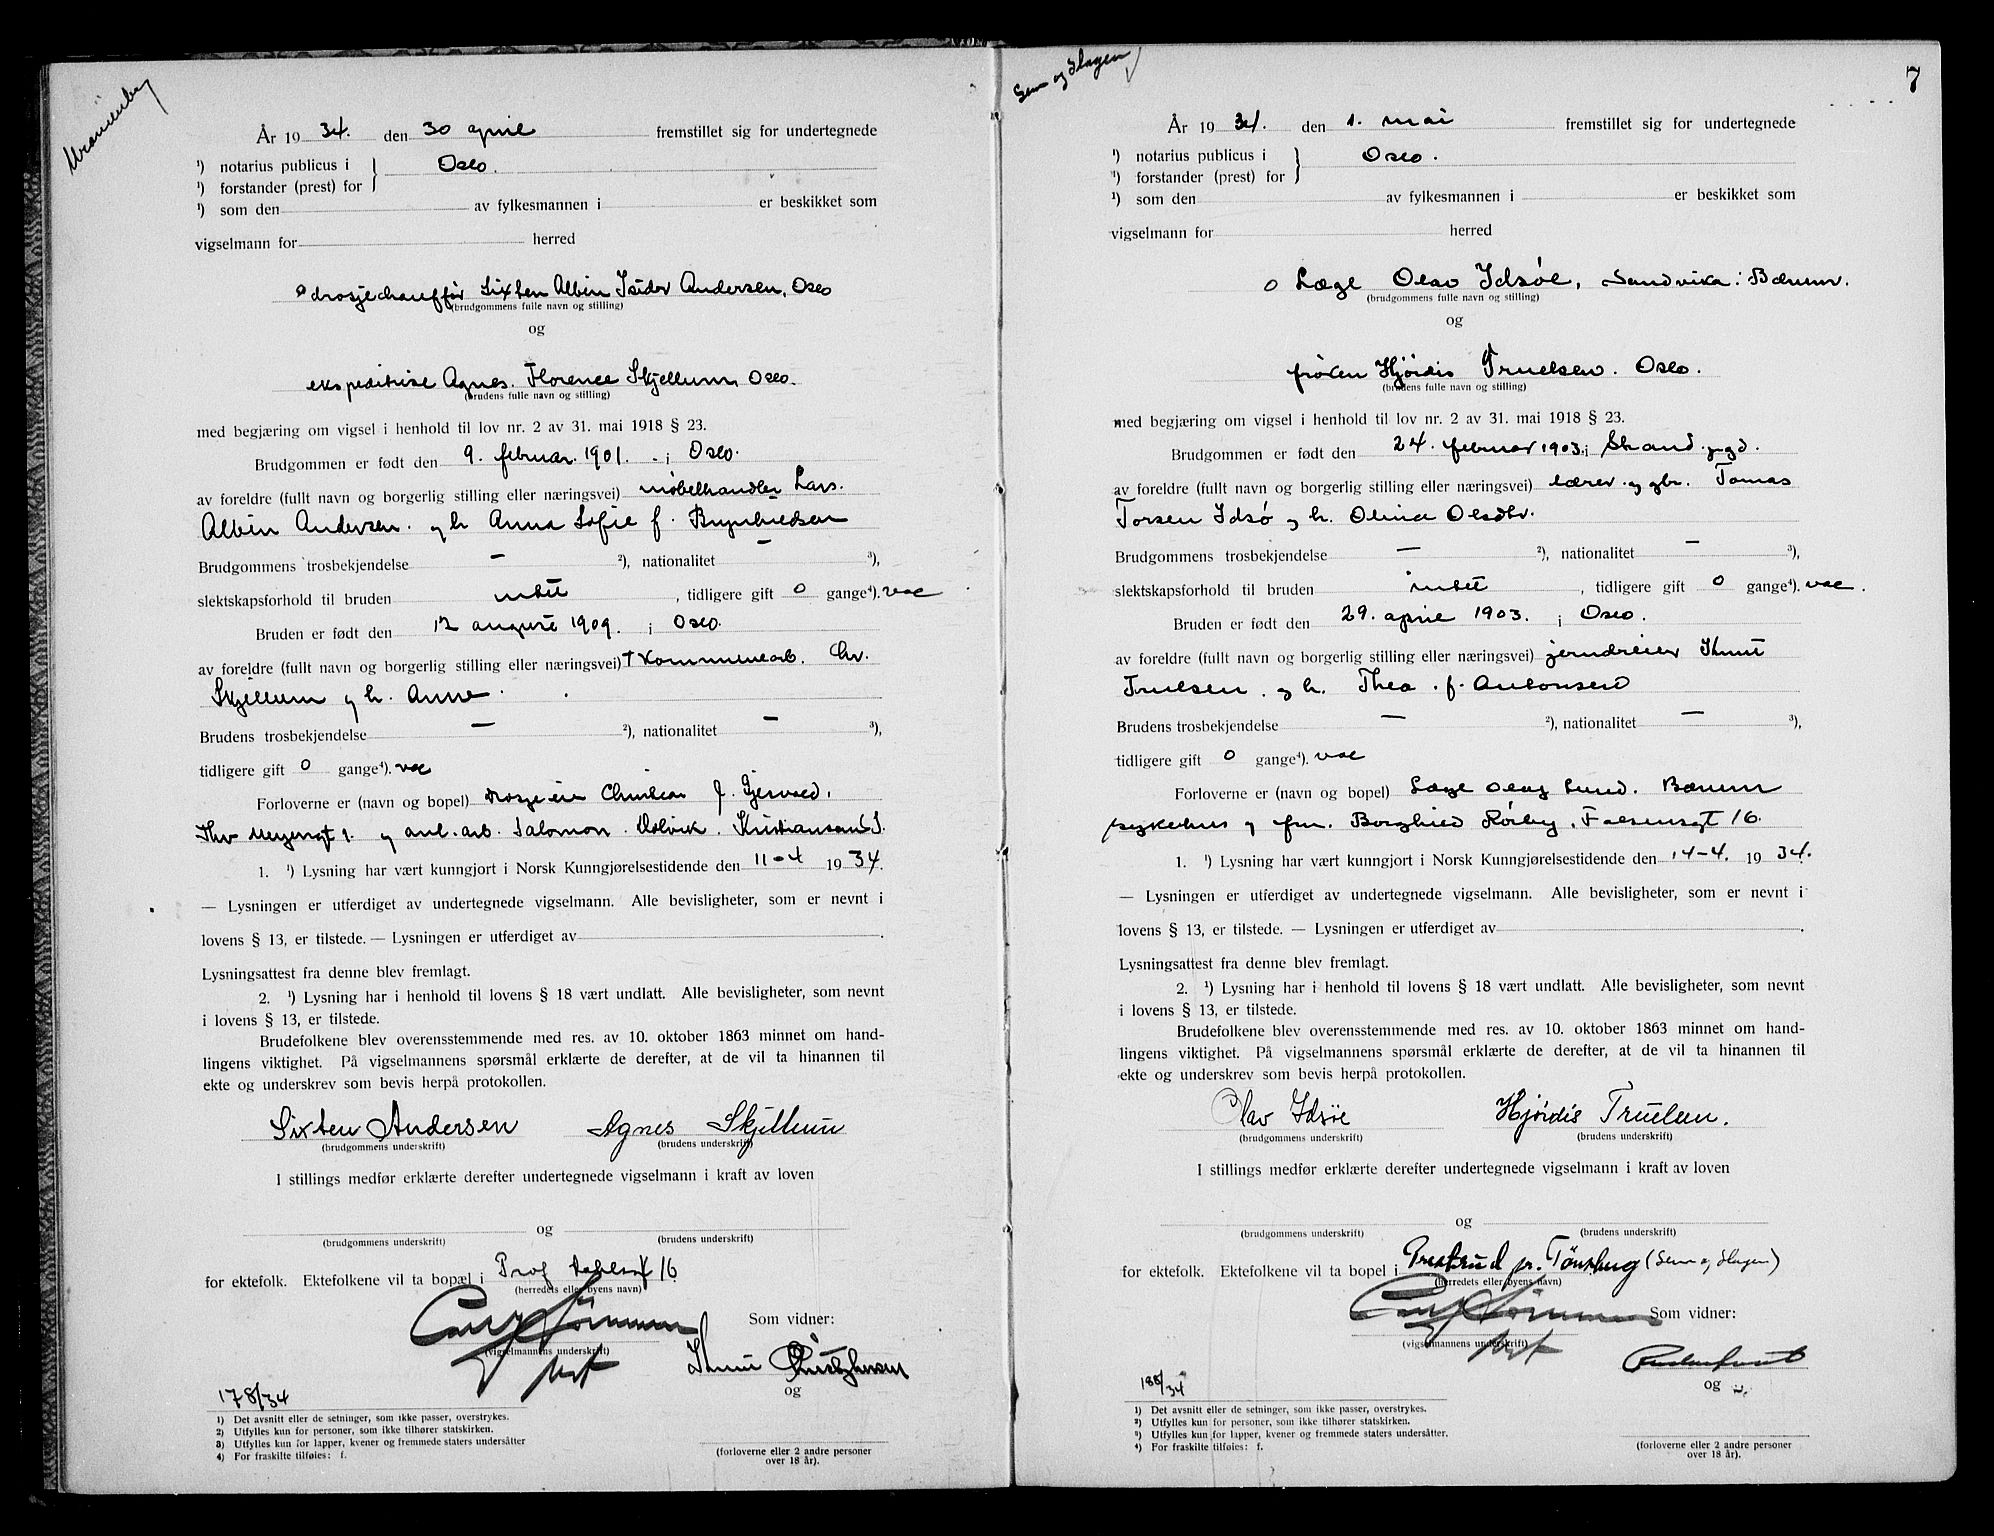 Uranienborg
År 19 34. den 30 april fremstillet sig for undertegnede
¹) notarius publicus i } Oslo.
¹) forstander (prest) for
¹) som den av fylkesmannen i er beskikket som
vigselmann for herred
drosjechauffør Sixten Albin Isidor Andersen, Oslo
(brudgommens fulle navn og stilling)
og
ekspeditrise Agnes Florence Skjellum, Oslo.
(brudens fulle navn og stilling)
med begjæring om vigsel i henhold til lov nr. 2 av 31. mai 1918 § 23.
Brudgommen er født den 9. februar 1901. i Oslo.
av foreldre (fullt navn og borgerlig stilling eller næringsvei) møbelhandler Lars
Albin Andersen og h. Anna Sofie f. Brynhildsen
Brudgommens trosbekjendelse — ²), nationalitet — ³),
slektskapsforhold til bruden intet, tidligere gift 0 gange⁴). vac
Bruden er født den 12 august 1909. i Oslo.
av foreldre (fullt navn og borgerlig stilling eller næringsvei) † kommunearb. Chr.
Skjellum og h. Anne.
Brudens trosbekjendelse — ²), nationalitet — ³),
tidligere gift 0 gange⁴). vac
Forloverne er (navn og bopel) drosjeeier Christian J. Gjervold,
Thv Meyersgt 1. og anl. arb. Salomon Kristiansand S.
1. ¹) Lysning har vært kunngjort i Norsk Kunngjørelsestidende den 11-4 1934.
— Lysningen er utferdiget av undertegnede vigselmann. Alle bevisligheter, som er nevnt i
lovens § 13, er tilstede. — Lysningen er utferdiget av .
Lysningsattest fra denne blev fremlagt.
2. ¹) Lysning har i henhold til lovens § 18 vært undlatt. Alle bevisligheter, som nevnt
i lovens § 13, er tilstede.
Brudefolkene blev overensstemmende med res. av 10. oktober 1863 minnet om hand-
lingens viktighet. På vigselmannens spørsmål erklærte de derefter, at de vil ta hinannen til
ekte og underskrev som bevis herpå protokollen.
Sixten Andersen Agnes Skjellum
(brudgommens underskrift) (brudens underskrift)
I stillings medfør erklærte derefter undertegnede vigselmann i kraft av loven
og
(brudgommens underskrift) (brudens underskrift)
for ektefolk. Ektefolkene vil ta bopæl i Prof Dahlsgt 16
(herredets eller byens navn)
Som vidner:
(vigselmannens underskrift)
og
178/34
1) Det avsnitt eller de setninger, som ikke passer, overstrykes.
2) Utfylles kun for personer, som ikke tilhører statskirken.
3) Utfylles kun for lapper, kvener og fremmede staters undersåtter
4) For fraskilte tilføies: f.
(forloverne eller 2 andre personer
over 18 år).
Sem og Slagen
7
År 19 34. den 1. mai fremstillet sig for undertegnede
¹) notarius publicus i } Oslo.
¹) forstander (prest) for
¹) som den av fylkesmannen i er beskikket som
vigselmann for herred
Læge Olav Idsøe, Sandvika i Bærum.
(brudgommens fulle navn og stilling)
og
frøken Hjørdis Truelsen. Oslo.
(brudens fulle navn og stilling)
med begjæring om vigsel i henhold til lov nr. 2 av 31. mai 1918 § 23.
Brudgommen er født den 24. februar 1903. i Strand pgd.
av foreldre (fullt navn og borgerlig stilling eller næringsvei) lærer og gbr. Tomas
Torsen Idsø og h. Olina Olsdtr.
Brudgommens trosbekjendelse — ²), nationalitet — ³),
slektskapsforhold til bruden intet, tidligere gift 0 gange⁴). vac.
Bruden er født den 29. april 1903. i Oslo.
av foreldre (fullt navn og borgerlig stilling eller næringsvei) jerndreier Knut
Truelsen og h. Thea f. Antonsen
Brudens trosbekjendelse — ²), nationalitet — ³),
tidligere gift 0 gange⁴). vac
Forloverne er (navn og bopel) Læge Olav Lund. Bærum
sykehus og frn. Borghild Rørby, Falsensgt 16.
1. ¹) Lysning har vært kunngjort i Norsk Kunngjørelsestidende den 14-4. 19 34.
— Lysningen er utferdiget av undertegnede vigselmann. Alle bevisligheter, som er nevnt i
lovens § 13, er tilstede. — Lysningen er utferdiget av .
Lysningsattest fra denne blev fremlagt.
2. ¹) Lysning har i henhold til lovens § 18 vært undlatt. Alle bevisligheter, som nevnt
i lovens § 13, er tilstede.
Brudefolkene blev overensstemmende med res. av 10. oktober 1863 minnet om hand-
lingens viktighet. På vigselmannens spørsmål erklærte de derefter, at de vil ta hinannen til
ekte og underskrev som bevis herpå protokollen.
Olav Idsøe Hjørdis Truelsen.
(brudgommens underskrift) (brudens underskrift)
I stillings medfør erklærte derefter undertegnede vigselmann i kraft av loven
og
(brudgommens underskrift) (brudens underskrift)
for ektefolk. Ektefolkene vil ta bopel i Presterud pr. Tønsberg (Sem og Slagen)
(herredets eller byens navn)
Som vidner:
(vigselmannens underskrift)
og
188/34
1) Det avsnitt eller de setninger, som ikke passer, overstrykes.
2) Utfylles kun for personer, som ikke tilhører statskirken.
3) Utfylles kun for lapper, kvener og fremmede staters undersåtter.
4) For fraskilte tilføies: f.
(forloverne eller 2 andre personer
over 18 år).